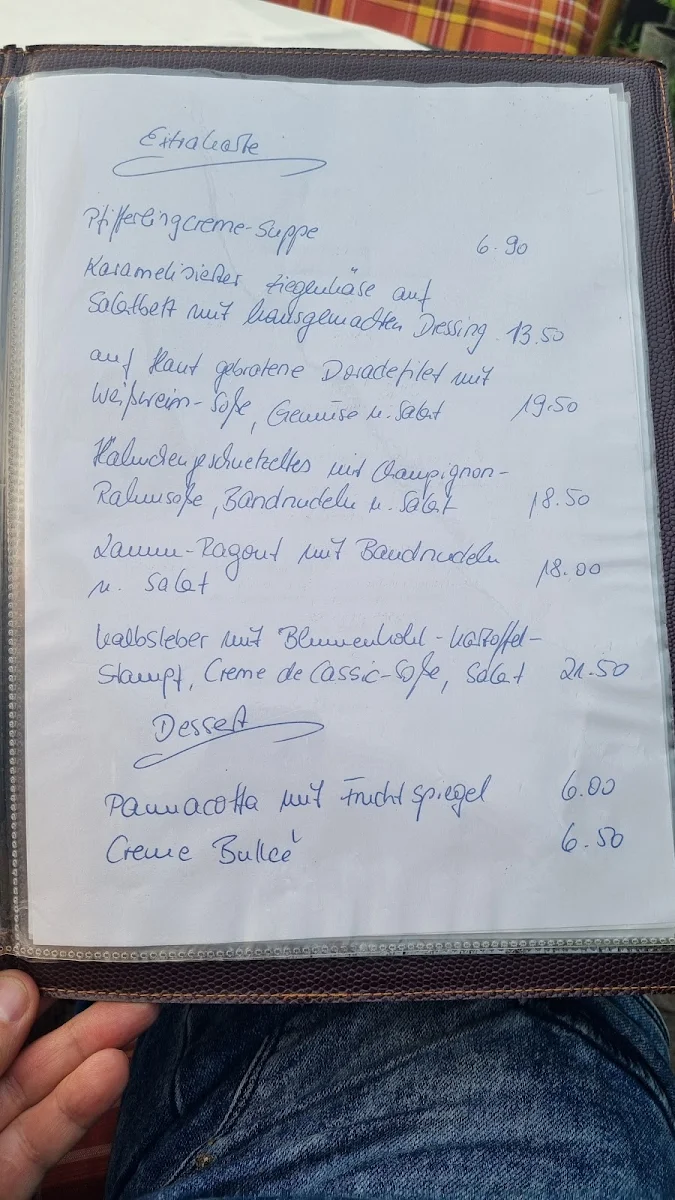 Extrakarte
Pfifferlingcreme-Suppe 6.90
Karamelisierter Ziegenkäse auf
Salatbett mit hausgemachten Dessing 13.50
auf Haut gebratene Doradefilet mit
Weißwein-Soße, Gemüse u. Salat 19.50
Hähnchengeschnetzeltes mit Champignon-
Rahmsoße, Bandnudeln u. Salat 18.50
Lamm-Ragout mit Bandnudeln 18.00
u. Salat
Kalbsleber mit Blumenkohl-Kartoffel-
Stampf, Creme de Cassic-Soße, Salat 21.50
Dessert
Pannacotta mit Fruchtspiegel 6.00
Creme Bulleé 6.50